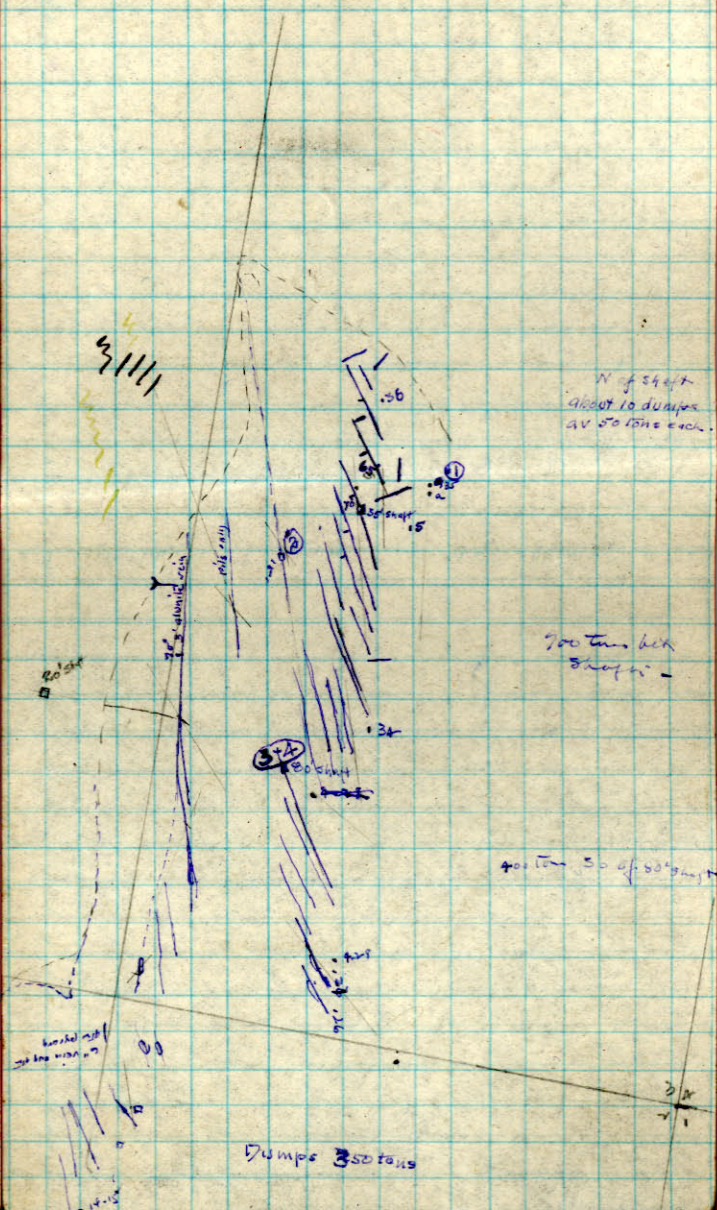 N of shaft
about 10 dumps
av 50 tons each.
.36
1
a
35' shaft
.5
2
70° 3' alunite vein
20' sh
700 tons bet
Shafts -
. 34
3+4
80' shaft
400 ton So of 80' shaft
4.28
Dumps 350 tons
14.15